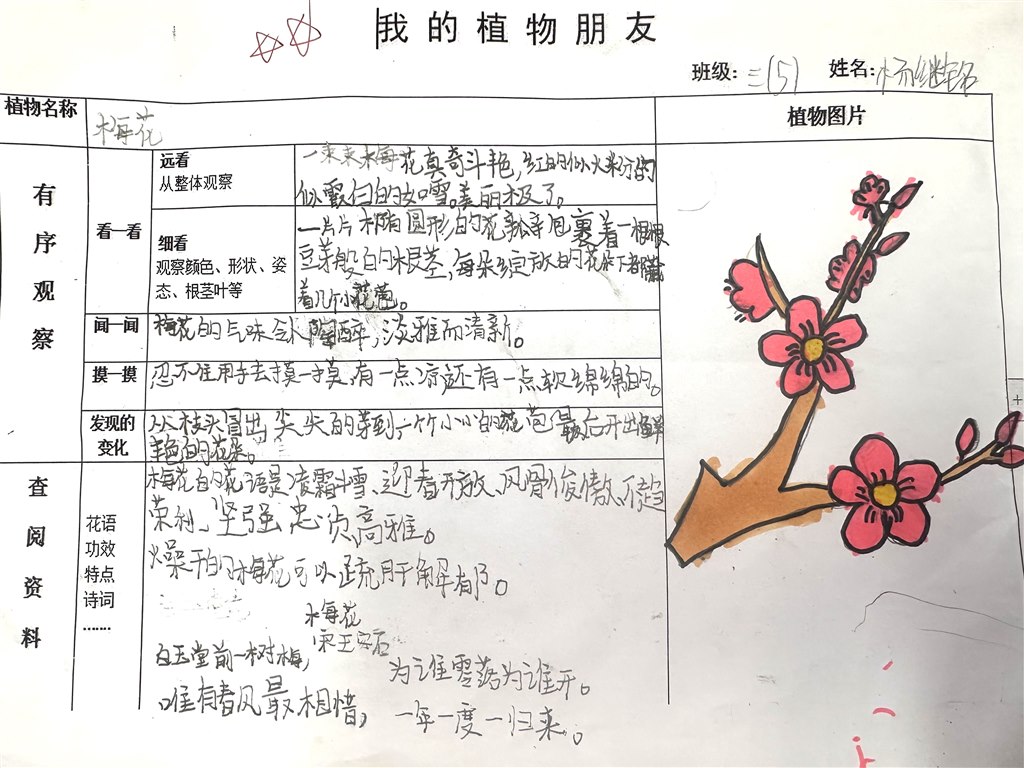 我的植物朋友
班级：三(5) 姓名：杨继铭
植物名称
梅花
植物图片
有序观察
看一看
远看
从整体观察
一束束梅花真奇斗艳，红的似火粉的
似霞白的如雪。美丽极了。
细看
观察颜色、形状、姿
态、根茎叶等
一片片椭圆形的花瓣亲包裹着一根根
豆芽般的根茎，每朵绽放的花朵下都藏
着几个小花苞。
闻一闻
梅花的气味令人陶醉，淡雅而清新。
摸一摸
忍不住用手去摸一摸，有一点凉还有一点软绵绵的。
发现的
变化
从枝头冒出尖尖的芽到一个小小的花苞最后开出鲜
艳的花朵。
查阅资料
花语
功效
特点
诗词
……
梅花的花语是凌霜斗雪、迎春开放、风骨俊傲、不趋
荣利、坚强忠贞、高雅。
燥干的梅花可以疏肝解郁。
梅花
宋王安石
白玉堂前一树梅，
为谁零落为谁开。
唯有春风最相惜，
一年一度一归来。